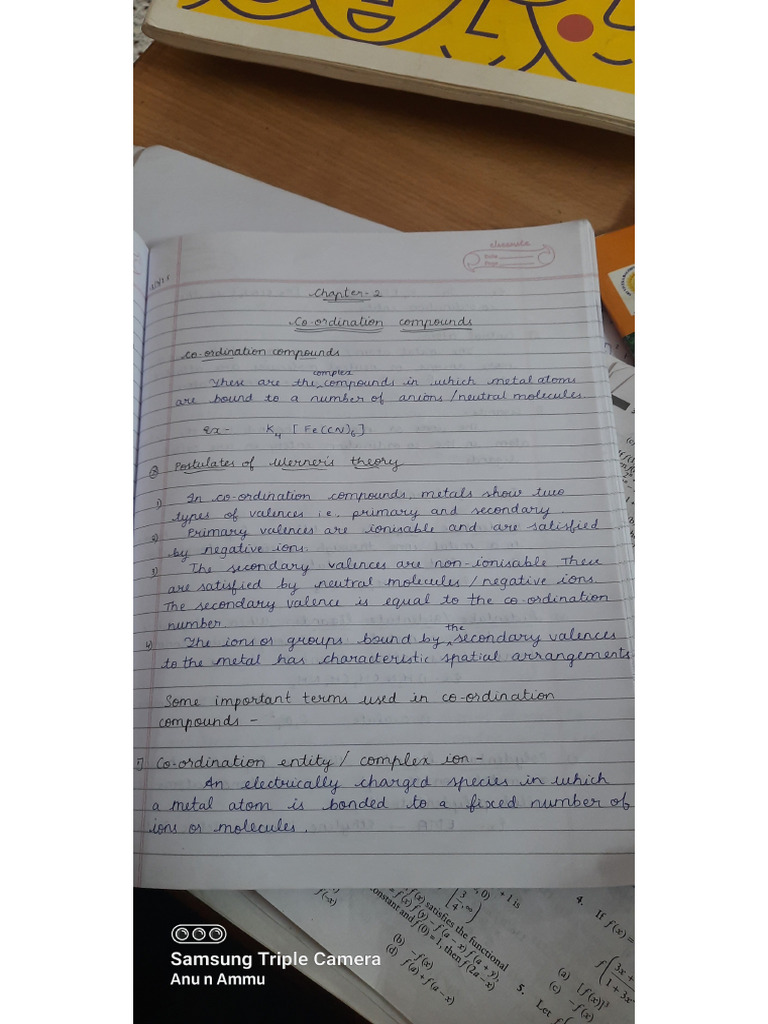 classmate
Date
Page
Chapter-2
Co-ordination compounds
Co-ordination compounds
complex
These are the compounds in which metal atoms
are bound to a number of anions/neutral molecules.
Ex- K4 [Fe(CN)6]
Postulates of Werner's theory
1) In co-ordination compounds, metals show two
types of valences i.e. primary and secondary.
2) Primary valences are ionisable and are satisfied
by negative ions.
3) The secondary valences are non-ionisable. These
are satisfied by neutral molecules / negative ions.
The secondary valence is equal to the co-ordination
number.
the
4) The ions or groups bound by secondary valences
to the metal has characteristic spatial arrangements.
Some important terms used in co-ordination
compounds -
1) Co-ordination entity / complex ion -
An electrically charged species in which
a metal atom is bonded to a fixed number of
ions or molecules.
f(-x)
[3/4, ∞)
, 0) + 1 is
f(x) satisfies the functional
= f(x) f(y) - f(a - x) f(a + y),
onstant and f(0) = 1, then f(2a - x)
(b) -f(x)
(d) f(a) + f(a - x)
4. If f(x) =
f(3x +
1 + 3x
(a) [f(x)]³
(c) -f(x)
5. Let
Samsung Triple Camera
Anu n Ammu